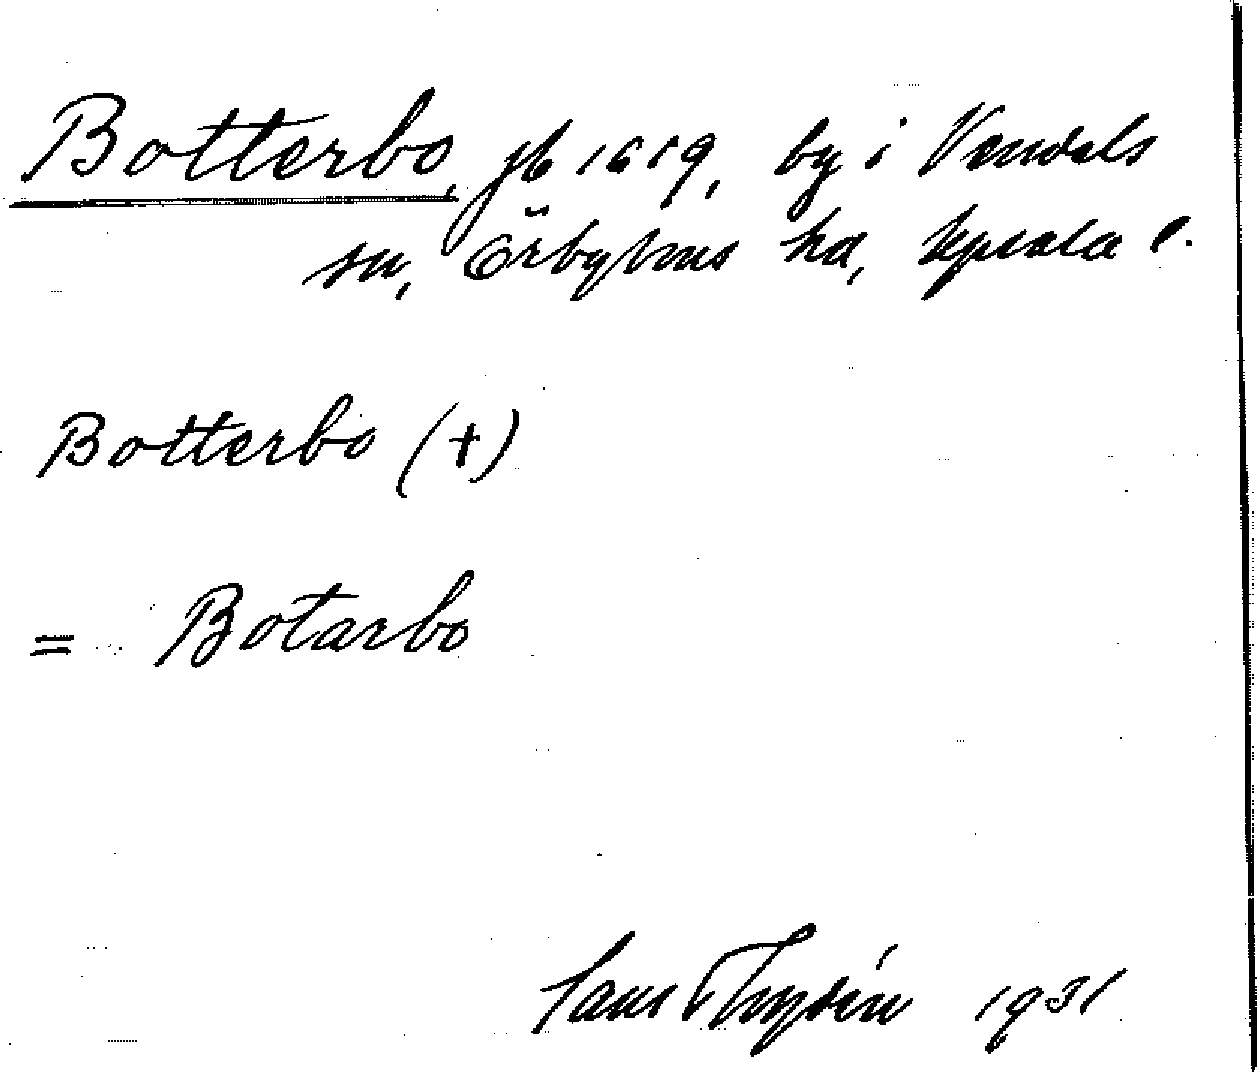 Botterbo, jb 1619, by i Vendels
sn, Örbyhus hd, Upsala l.
Botterbo (+)
= Botarbo
1931